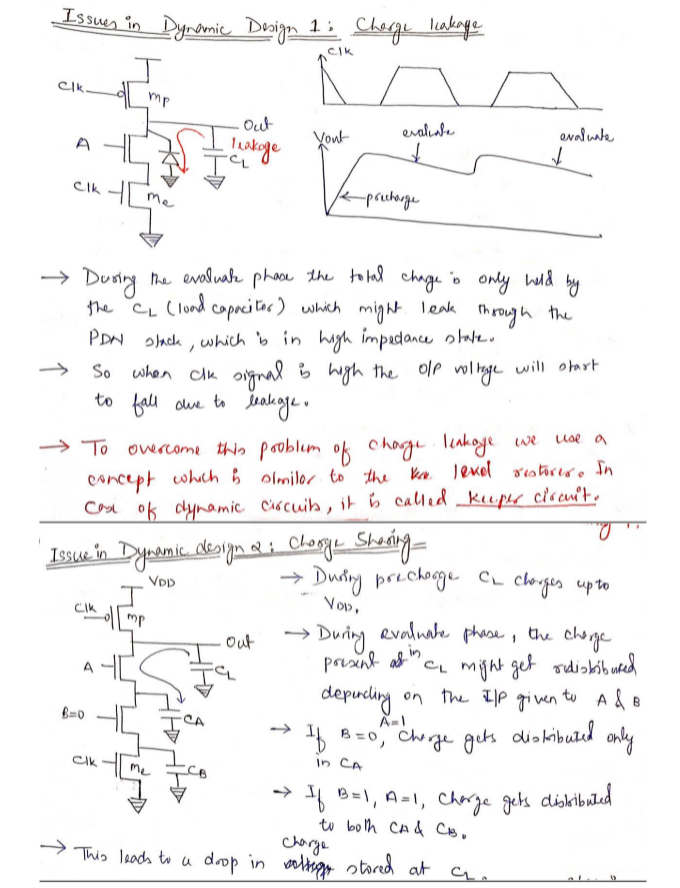 Issues in Dynamic Design 1: Charge leakage
Clk
Clk
mp
Out
A
leakage
CL
Clk
me
Vout
evaluate
evaluate
precharge
→ During the evaluate phase the total charge is only held by
the CL (load capacitor) which might leak through the
PDN stack, which is in high impedance state.
→ So when clk signal is high the O/P voltage will start
to fall due to leakage.
→ To overcome this problem of charge leakage we use a
concept which is similar to the level restorer. In
case of dynamic circuits, it is called keeper circuit.
Issue in Dynamic design 2: Charge Sharing
VDD
Clk
mp
Out
A
CL
B=0
CA
Clk
me
CB
→ During precharge CL charges upto
VDD.
→ During evaluate phase, the charge
present in CL might get redistributed
depending on the I/P given to A & B
→ If B=0, A=1 Charge gets distributed only
in CA
→ If B=1, A=1, charge gets distributed
to both CA & CB.
→ This leads to a drop in charge stored at CL.